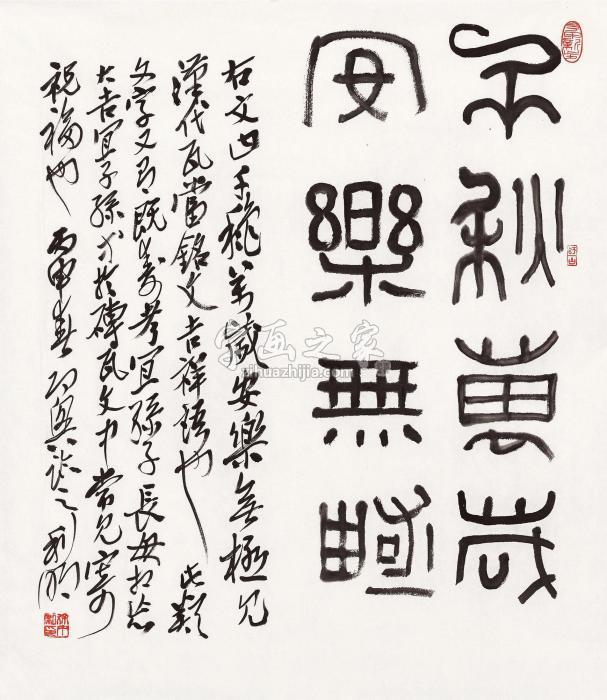 千秋萬歲
安樂無極
右文曰千龝萬歲安樂無極見
漢代瓦當銘文吉祥語也 此類
文字又有既壽考宜孫子長毋相忘
大吉宜子孫 於磚瓦文中常見寄
祝福也 丙申春
字画之家
zihuazhijia.com